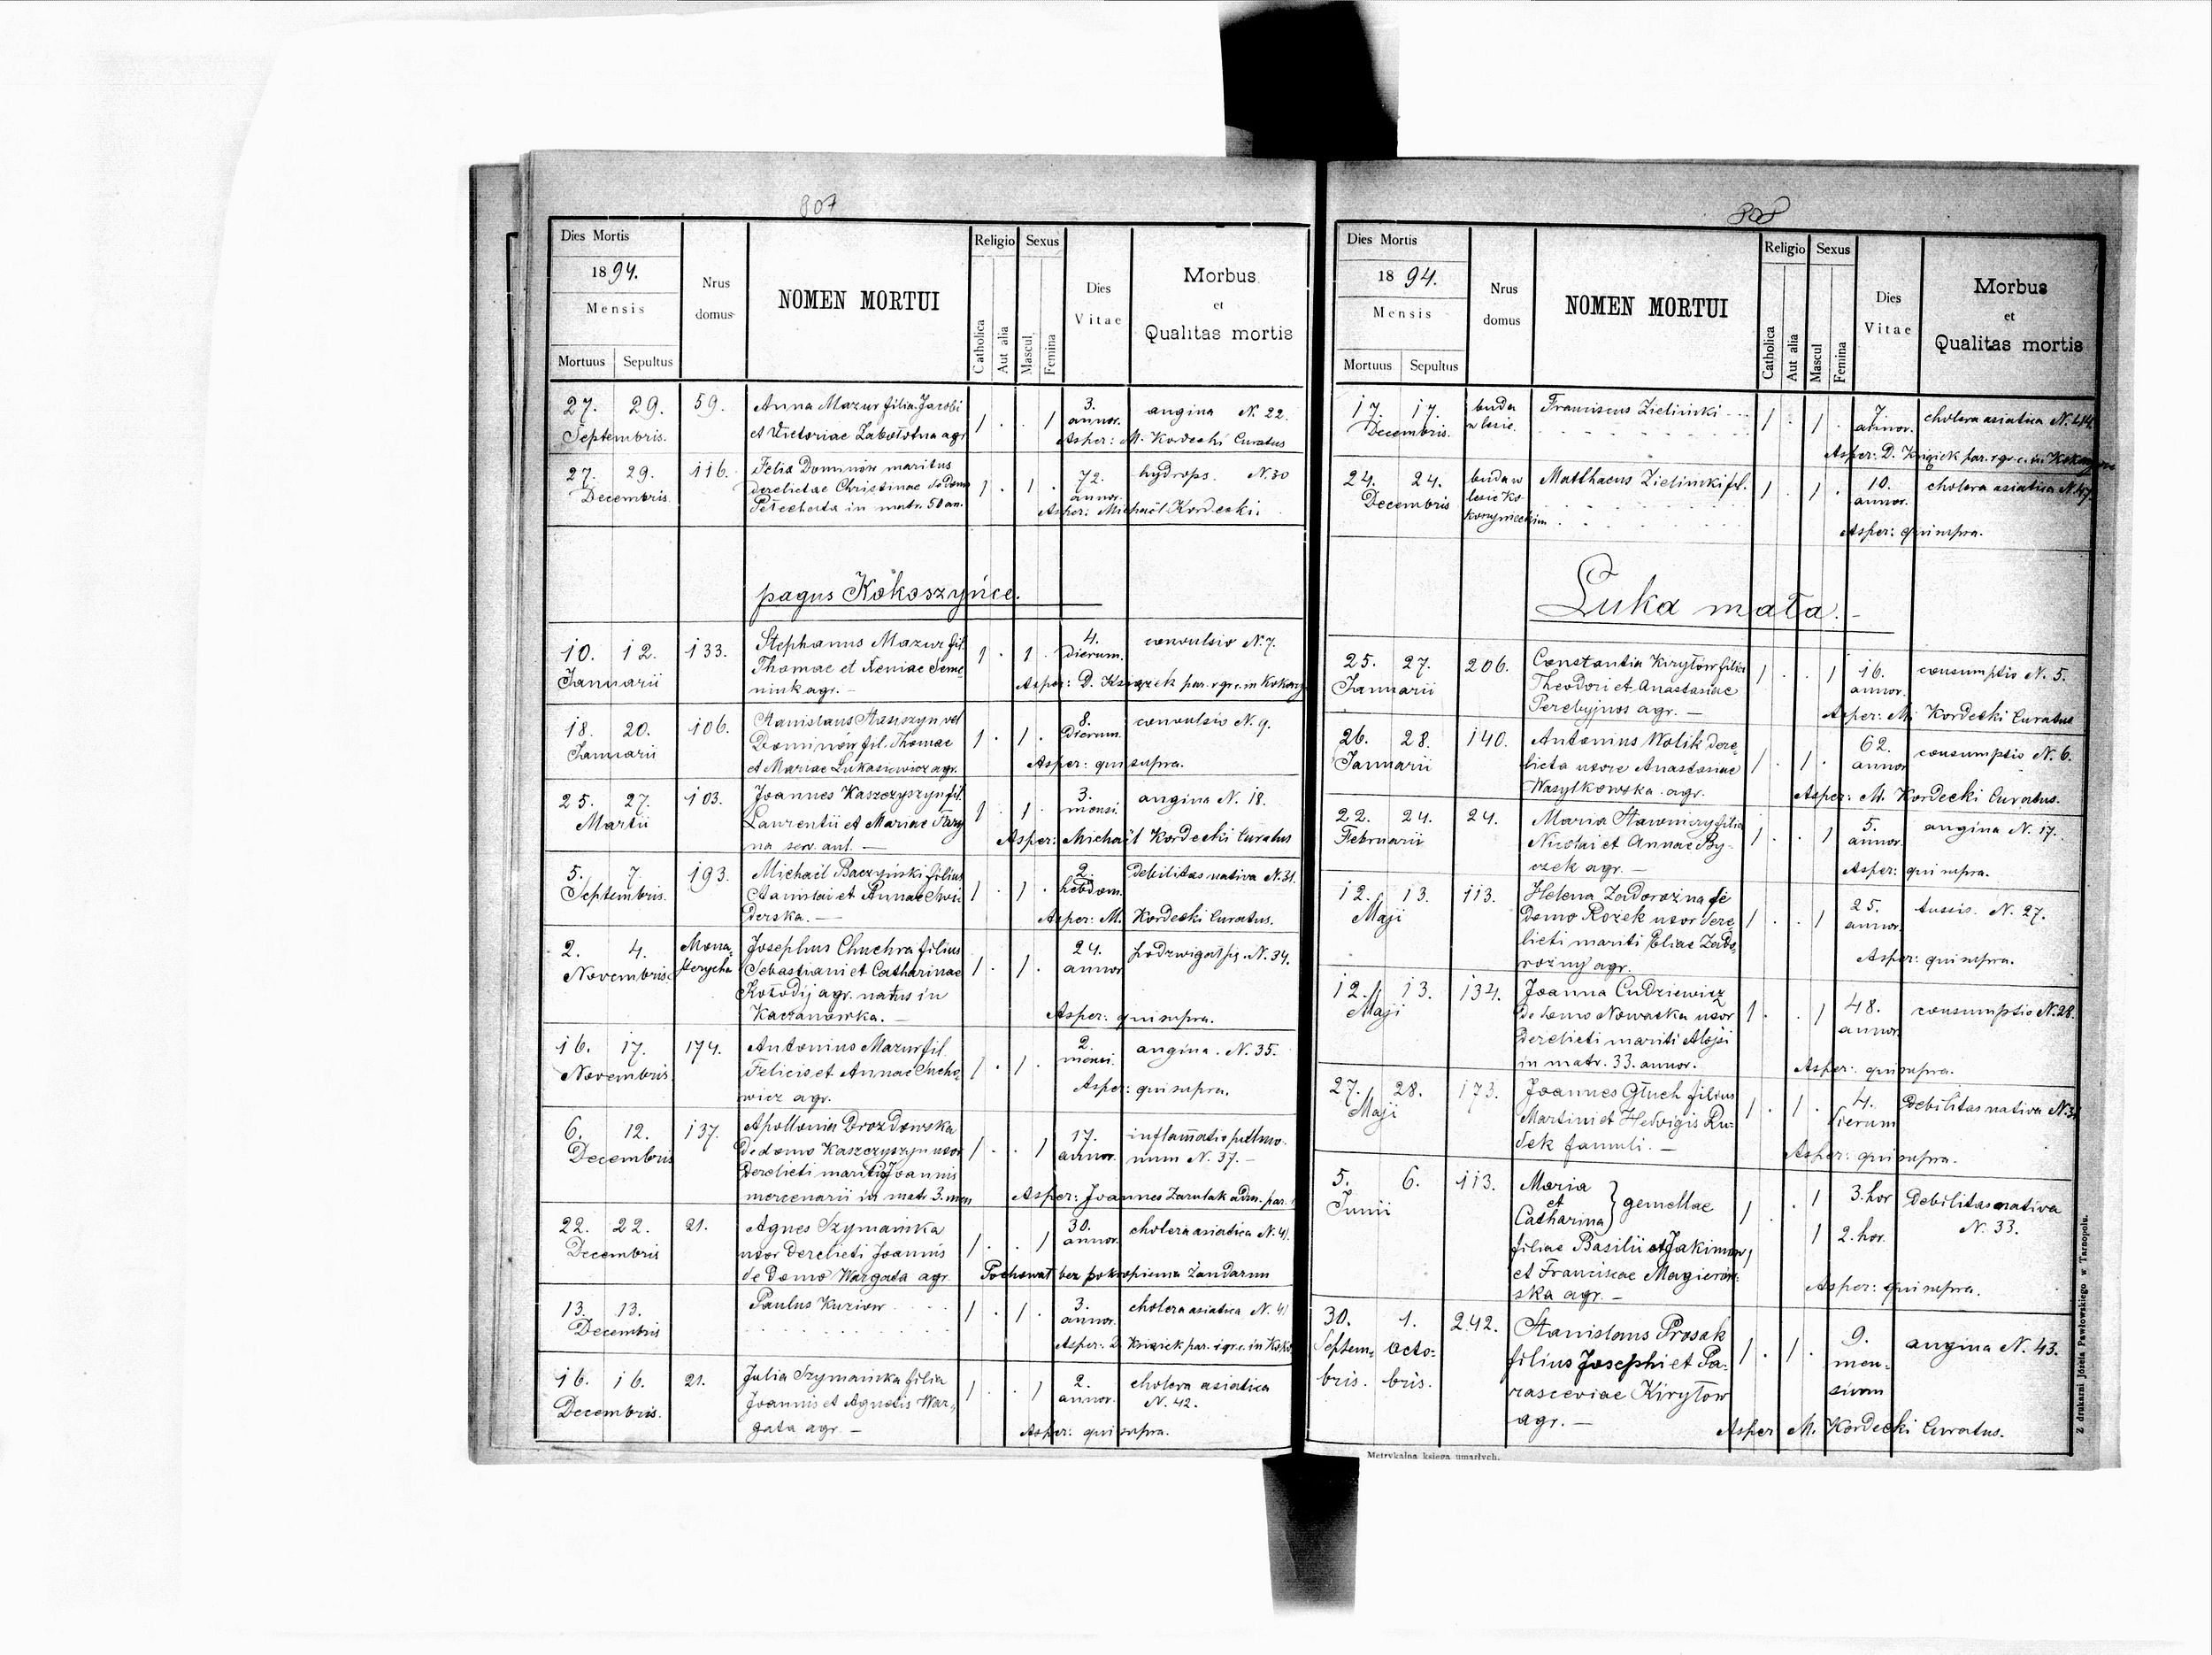 807
Dies Mortis
1894.
Mensis
Mortuus Sepultus
Nrus domus
NOMEN MORTUI
Religio
Catholica
Aut alia
Sexus
Mascul.
Femina
Dies Vitae
Morbus
et
Qualitas mortis
27. 29. 59. Anna Mazur filia Jacobi 1 . . 1 3. annor. angina N. 22.
Septembris. et Victoriae Zabołotna agr. Asper: M. Kordecki Curatus
27. 29. 116. Felix Dominów maritus 1 . 1 . 72. annor. hydrops. N. 30
Decembris derelictae Christinae de domo
in matr. 50 an. Asper: Michaël Kordecki.
pagus Kokoszyńce.
10. 12. 133. Stephanus Mazur fil. 1 . 1 . 4. dierum. convulsio N. 7.
Januarii Thomae et Xeniae Seme-
niuk agr. — Asper: D. Książek par. r. gr. c. in Kokosz
18. 20. 106. Stanislaus Stasiszyn vel 1 . 1 . 8. dierum. convulsio N. 9.
Januarii Dominów fil. Thomae
et Mariae Łukasiewicz agr. Asper: qui supra.
25. 27. 103. Joannes Kaszczyszyn fil. 1 . 1 . 3. mensi. angina N. 18.
Martii Laurentii et Mariae
na serv. aul. — Asper: Michaël Kordecki Curatus
5. 7. 193. Michaël Baczyński filius 1 . 1 . 2. hebdom. debilitas nativa N. 31.
Septembris. Stanislai et Annae Świ-
derska. — Asper: M. Kordecki Curatus.
2. 4. Mona- Josephus Chuchra filius 1 . 1 . 24. annor N. 34.
Novembris. sterycha Sebastiani et Catharinae
Kołodij agr. natus in
Kaczanówka. — Asper: qui supra.
16. 17. 174. Antonius Mazur fil. 1 . 1 . 2. mensi. angina. N. 35.
Novembris Felicis et Annae Sucho-
wicz agr. Asper: qui supra.
6. 12. 137. Apollonia Drozdowska 1 . . 1 17. annor. inflamatio pulmo-
Decembris de domo Kaszczyszyn uxor num N. 37. —
derelicti mariti Joannis
mercenarii in matr. 3. men Asper: Joannes Zarulak adm. par.
22. 22. 21. Agnes Szymańska 1 . . 1 30. annor. cholera asiatica N. 41.
Decembris uxor derelicti Joannis
de domo Wargata agr. Pochował bez pokropienia żandarm
13. 13. Paulus Kuziow 1 . 1 . 3. annor. cholera asiatica N. 41
Decembris Asper: D. Książek par. r. gr. c. in Koko
16. 16. 21. Julia Szymańska filia 1 . . 1 2. annor. cholera asiatica
Decembris. Joannis et Agnetis War- N. 42.
gata agr. — Asper: qui supra.
808
Dies Mortis
1894.
Mensis
Mortuus Sepultus
Nrus domus
NOMEN MORTUI
Religio
Catholica
Aut alia
Sexus
Mascul
Femina
Dies Vitae
Morbus
et
Qualitas mortis
17. 17. buda Franciscus Zieliński 1 . 1 . 7. annor. cholera asiatica N. 44.
Decembris. w lesie. Asper: D. Książek par. r. gr. c. in
24. 24. buda w Matthaeus Zieliński fil. 1 . 1 . 10. annor. cholera asiatica N. 47.
Decembris lesie Ko-
Asper: qui supra.
Łuka mała. —
25. 27. 206. Constantia Kiryłów filia 1 . . 1 16. annor. consumptio N. 5.
Januarii Theodori et Anastasiae
Perebyjnos agr. — Asper: M. Kordecki Curatus
26. 28. 140. Antonius Wolik dere- 1 . 1 . 62. annor consumptio N. 6.
Januarii licta uxore Anastasiae
Wasylkowska agr. Asper: M. Kordecki Curatus.
22. 24. 24. Maria Stawniczy filia 1 . . 1 5. annor. angina N. 17.
Februarii Nicolai et Annae By-
czek agr. — Asper: qui supra.
12. 13. 113. Helena Zadorożna de 1 . . 1 25. annor. tussis. N. 27.
Maji domo Rożek uxor dere-
licti mariti Eliae Zado-
rożny agr. Asper: qui supra.
12. 13. 134. Joanna Cudziewicz 1 . . 1 48. annor. consumptio N. 28.
Maji de domo Nowacka uxor
derelicti mariti Alojsi
in matr. 33. annor. Asper: qui supra.
27. 28. 173. Joannes Głuch filius 1 . 1 . 4. dierum debilitas nativa N. 31
Maji Martini et Helvigis Ru-
dek famuli. — Asper: qui supra.
5. 6. 113. Maria . 1 3. hor debilitas nativa
Junii et } gemellae 1
Catharina 1 2. hor. N. 33.
filiae Basilii et Jakimow
et Franciscae Magierow-
ska agr. — Asper: qui supra.
30. 1. 242. Stanislaus Prosak 1 . 1 . 9. angina N. 43.
Septem- Octo- filius Josephi et Pa- men-
bris. bris. rasceviae Kiryłow sium
agr. — Asper M. Kordecki Curatus.
Metrykalna księga umarłych.
Z drukarni Józefa Pawłowskiego w Tarnopolu.